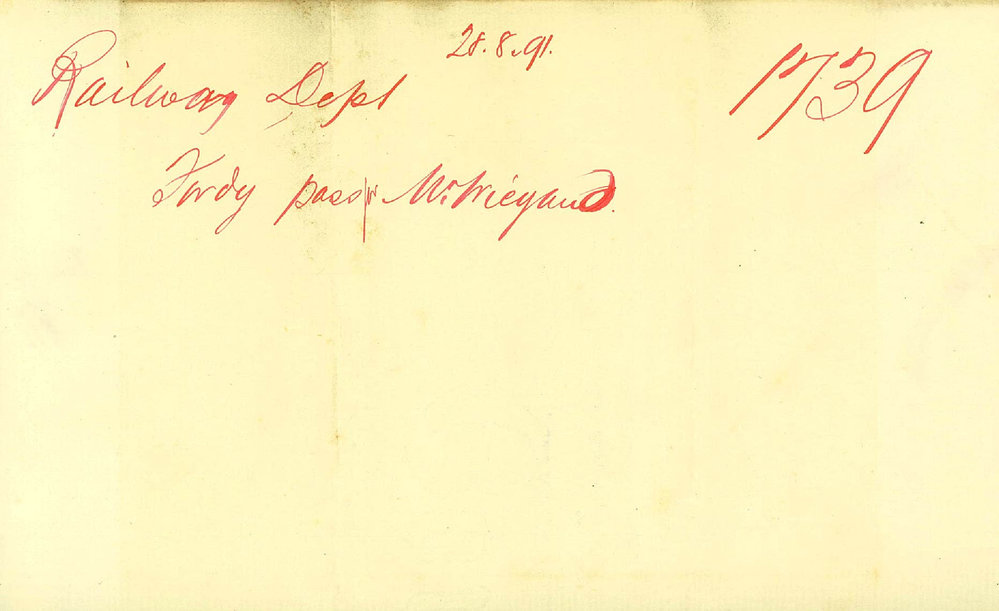 28.8.91.
Railway Dept 1739
Fordg pass for Mr Wiegand.